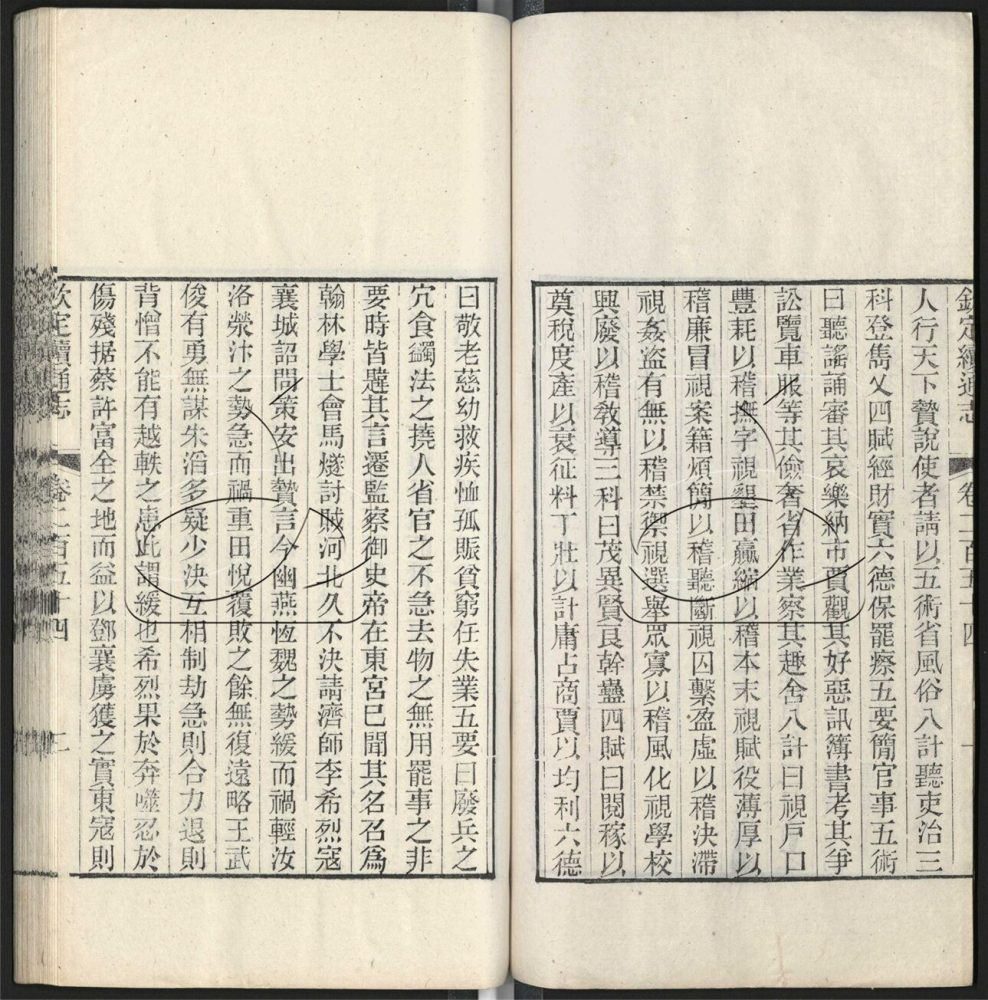 欽定續通志 卷二百五十四
人行天下贄說使者請以五術省風俗八計聽吏治三
科登雋乂四賦經財實六德保罷瘵五要簡官事五術
曰聽謠誦審其哀樂納市賈觀其好惡訊簿書考其爭
訟覽車服等其儉奢省作業察其趣舍八計曰視戸口
豐耗以稽撫字視墾田贏縮以稽本末視賦役薄厚以
稽廉冒視案籍煩簡以稽聽斷視囚繫盈虛以稽決滯
視姦盜有無以稽禁禦視選舉眾寡以稽風化視學校
興廢以稽敎導三科曰茂異賢良幹蠱四賦曰閱稼以
奠稅度產以裒征料丁壯以計庸占商賈以均利六德
曰敬老慈幼救疾恤孤賑貧窮任失業五要曰廢兵之
冗食蠲法之撓人省官之不急去物之無用罷事之非
要時皆韙其言遷監察御史帝在東宮已聞其名召爲
翰林學士會馬燧討賊河北久不決請濟師李希烈寇
襄城詔問策安出贄言今幽燕恆魏之勢緩而禍輕汝
洛滎汴之勢急而禍重田悅覆敗之餘無復遠略王武
俊有勇無謀朱滔多疑少決互相制劫急則合力退則
背憎不能有越軼之患此謂緩也希烈果於奔噬忍於
傷殘据蔡許富全之地而益以鄧襄虜獲之實東寇則
欽定續通志 卷二百五十四 三